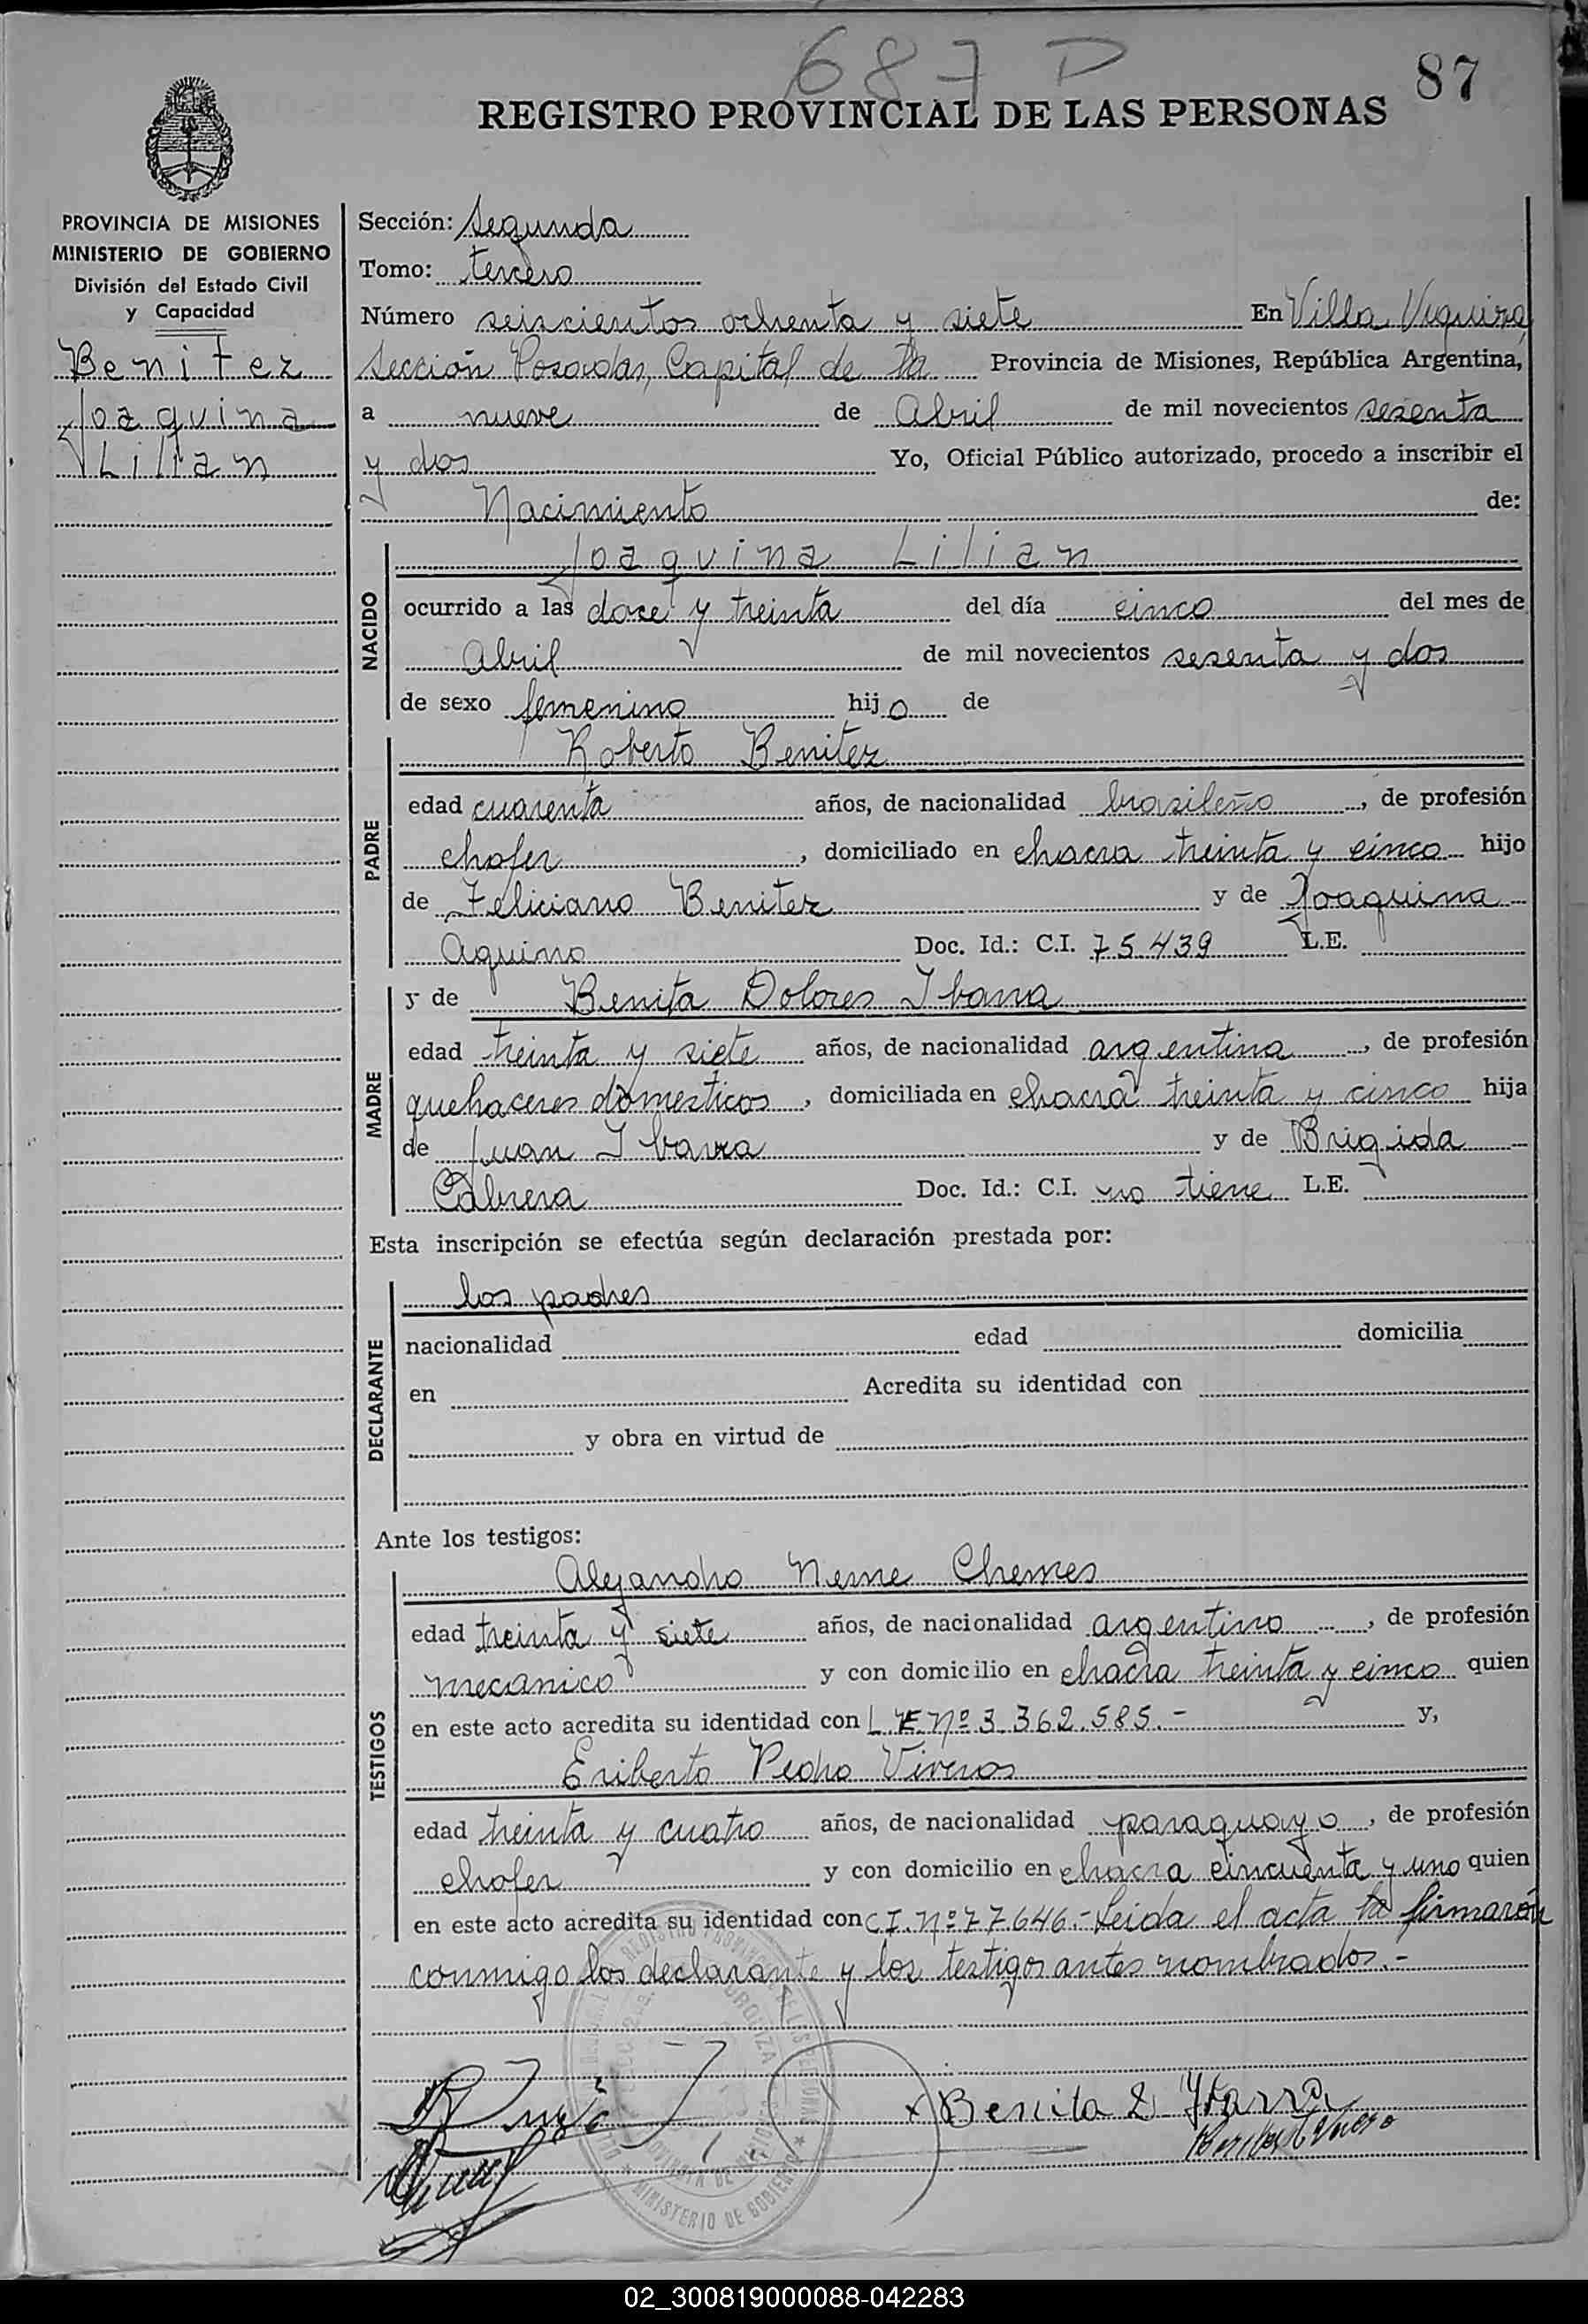 687 D
87
REGISTRO PROVINCIAL DE LAS PERSONAS
PROVINCIA DE MISIONES
MINISTERIO DE GOBIERNO
División del Estado Civil
y Capacidad
Benitez
Joaquina
Lilian
Sección: Segunda
Tomo: tercero
Número seiscientos ochenta y siete En Villa Urquiza,
Sección Posadas, Capital de la Provincia de Misiones, República Argentina,
a nueve de Abril de mil novecientos sesenta
y dos Yo, Oficial Público autorizado, procedo a inscribir el
Nacimiento de:
NACIDO
Joaquina Lilian
ocurrido a las doce y treinta del día cinco del mes de
Abril de mil novecientos sesenta y dos
de sexo femenino hijo de
PADRE
Roberto Benitez
edad cuarenta años, de nacionalidad brasileño, de profesión
chofer, domiciliado en chacra treinta y cinco hijo
de Feliciano Benitez y de Joaquina
Aquino Doc. Id.: C.I. 75.439 L.E.
MADRE
y de Benita Dolores Ibarra
edad treinta y siete años, de nacionalidad argentina, de profesión
quehaceres domesticos, domiciliada en chacra treinta y cinco hija
de Juan Ibarra y de Brigida
Cabrera Doc. Id.: C.I. no tiene L.E.
Esta inscripción se efectúa según declaración prestada por:
DECLARANTE
los padres
nacionalidad edad domicilia
en Acredita su identidad con
y obra en virtud de
Ante los testigos:
TESTIGOS
Alejandro Neme Chemes
edad treinta y siete años, de nacionalidad argentino, de profesión
mecanico y con domicilio en chacra treinta y cinco quien
en este acto acredita su identidad con L.E. Nº 3.362.585.- y,
Eriberto Pedro Viveros
edad treinta y cuatro años, de nacionalidad paraguayo, de profesión
chofer y con domicilio en chacra cincuenta y uno quien
en este acto acredita su identidad con C.I. Nº 77.646.- Leida el acta la firmarón
conmigo los declarante y los testigos antes nombrados.-
MINISTERIO DE GOBIERNO
Benita D Ibarra
02_300819000088-042283